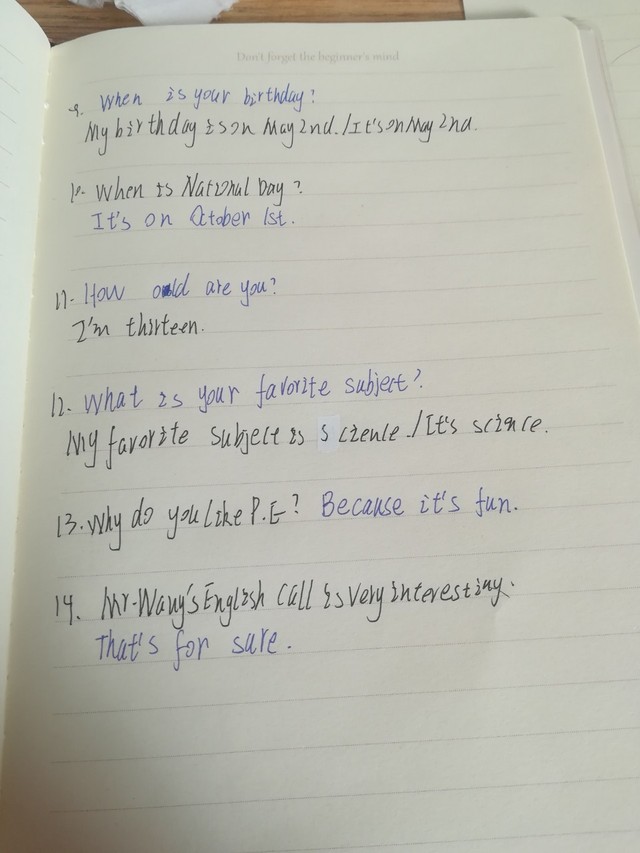 Don't forget the beginner's mind
9. When is your birthday?
My birthday is on May 2nd. / It's on May 2nd.
10. When is National Day?
It's on October 1st.
11. How old are you?
I'm thirteen.
12. What is your favorite subject?
My favorite subject is science. / It's science.
13. Why do you like P.E? Because it's fun.
14. Mr. Wang's English call is very interesting.
That's for sure.